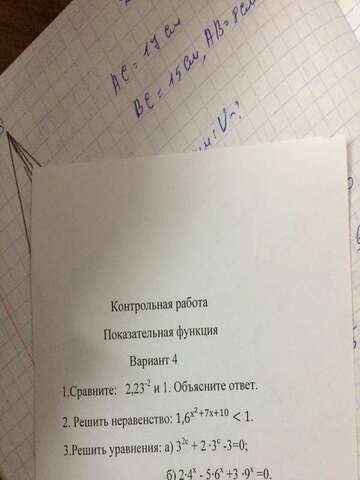 AC = 17 см
BC = 15 см, AB = 8 см
V - ?
Контрольная работа
Показательная функция
Вариант 4
1.Сравните: 2,23⁻² и 1. Объясните ответ.
2. Решить неравенство: 1,6^{x²+7x+10} < 1.
3.Решить уравнения: а) 3²ᶜ + 2 ·3ᶜ -3=0;
б) 2·4ˣ - 5·6ˣ +3 ·9ˣ =0.